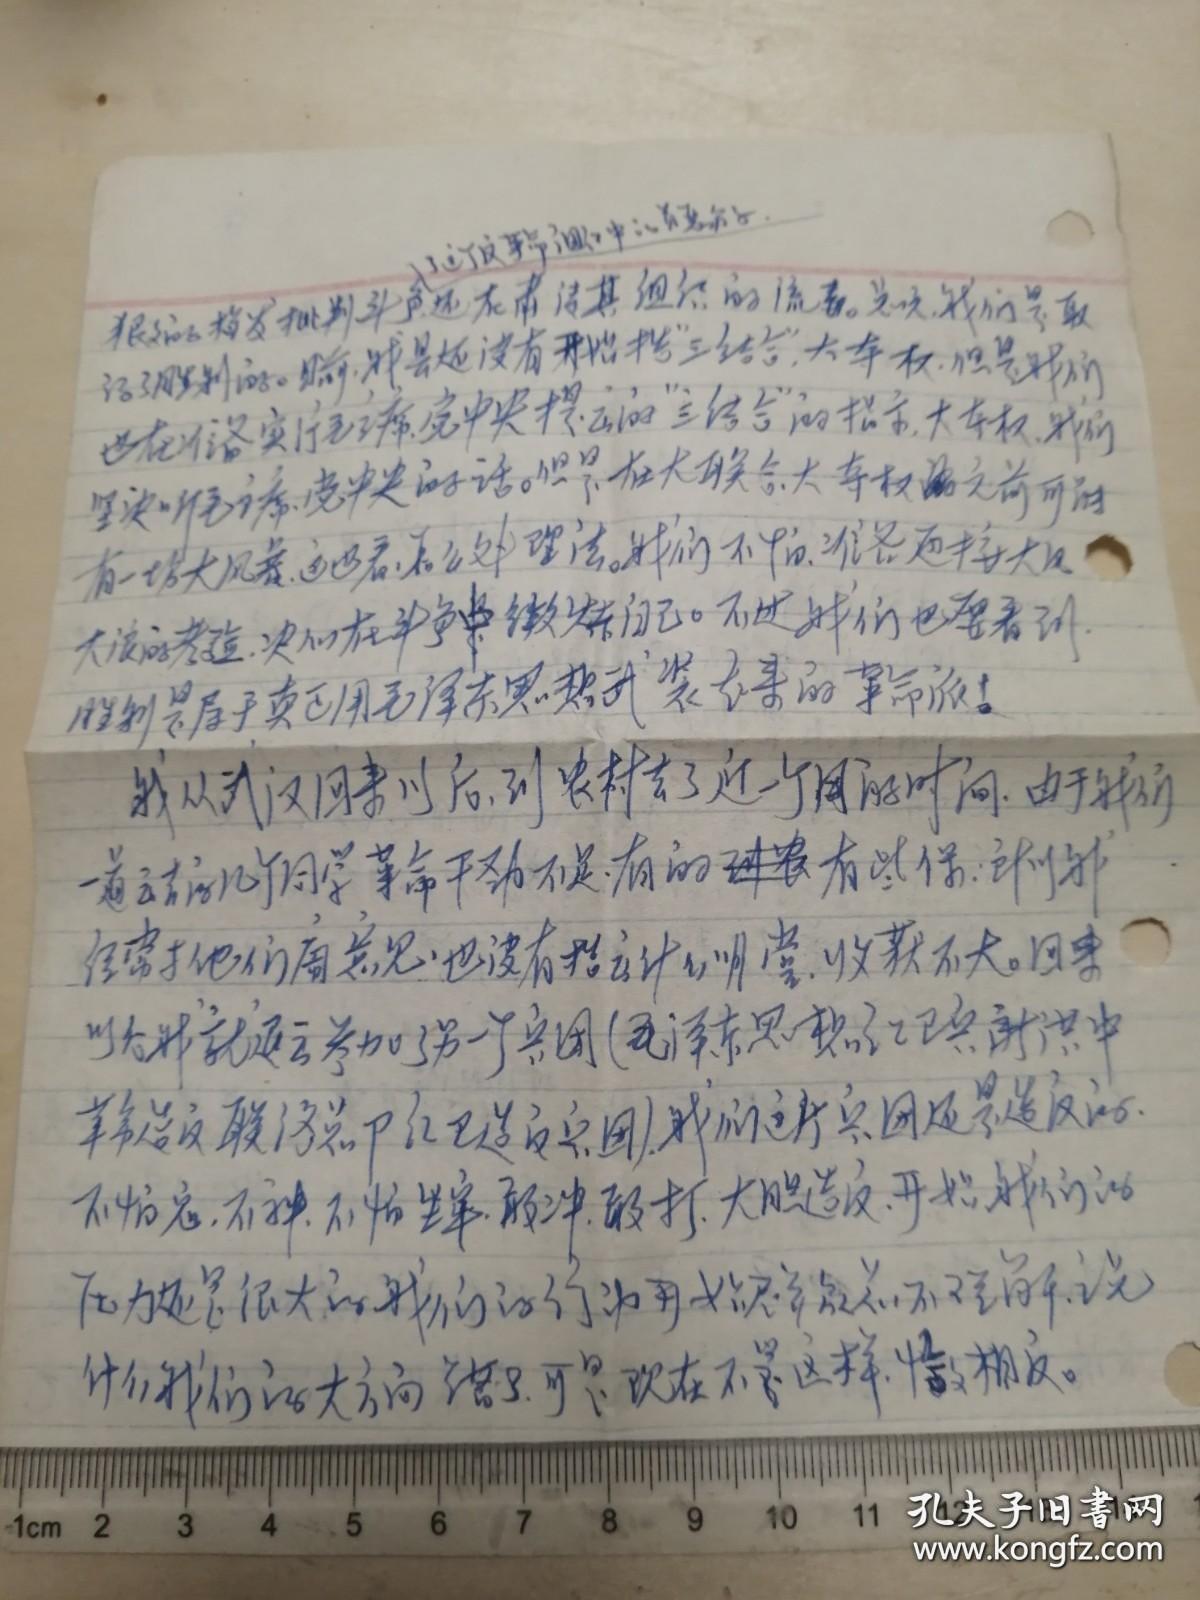 了这个反革命组织中的首恶分子.
狠狠的揭发批判斗争,还在肃清其组织的流毒。总之,我们是取
得了胜利的。目前,我县还没有开始搞"三结合",大夺权,但是我们
也在准备实行毛主席、党中央提出的"三结合"的指示,大夺权,我们
坚决听毛主席、党中央的话。但是,在大联合、大夺权之前可能
有一场大风暴,这也看怎么处理法。我们不怕,准备迎接大风
大浪的考验,决心在斗争中锻炼自己。不过我们也要看到,
胜利是属于真正用毛泽东思想武装起来的革命派!
我从武汉回来以后,到农村去了近一个月的时间,由于我们
一道去的几个同学革命干劲不足,有的有些保,所以我
经常与他们闹意见,也没有搞出什么明堂,收获不大。回来
以后我就退出参加了另一个兵团(毛泽东思想红卫兵新洪中
革命造反联络总部红卫造反兵团),我们这个兵团还是造反的,
不怕鬼,不神,不怕坐牢,敢冲,敢打,大胆造反,开始我们的
压力还是很大的,我们的行为开始群众总不理解,说
什么我们的大方向错了,可是,现在不是这样,恰恰相反。
-1cm 2 3 4 5 6 7 8 9 10 11 12 13
孔夫子旧书网
www.kongfz.com